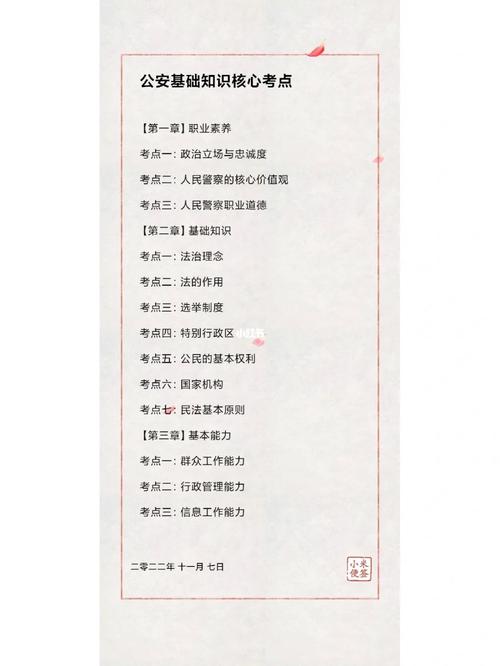 公安基础知识核心考点
【第一章】职业素养
考点一: 政治立场与忠诚度
考点二: 人民警察的核心价值观
考点三: 人民警察职业道德
【第二章】基础知识
考点一: 法治理念
考点二: 法的作用
考点三: 选举制度
考点四: 特别行政区
小红书
考点五: 公民的基本权利
考点六: 国家机构
考点七: 民法基本原则
【第三章】基本能力
考点一: 群众工作能力
考点二: 行政管理能力
考点三: 信息工作能力
二零二二年 十一月 七日
小米
便签